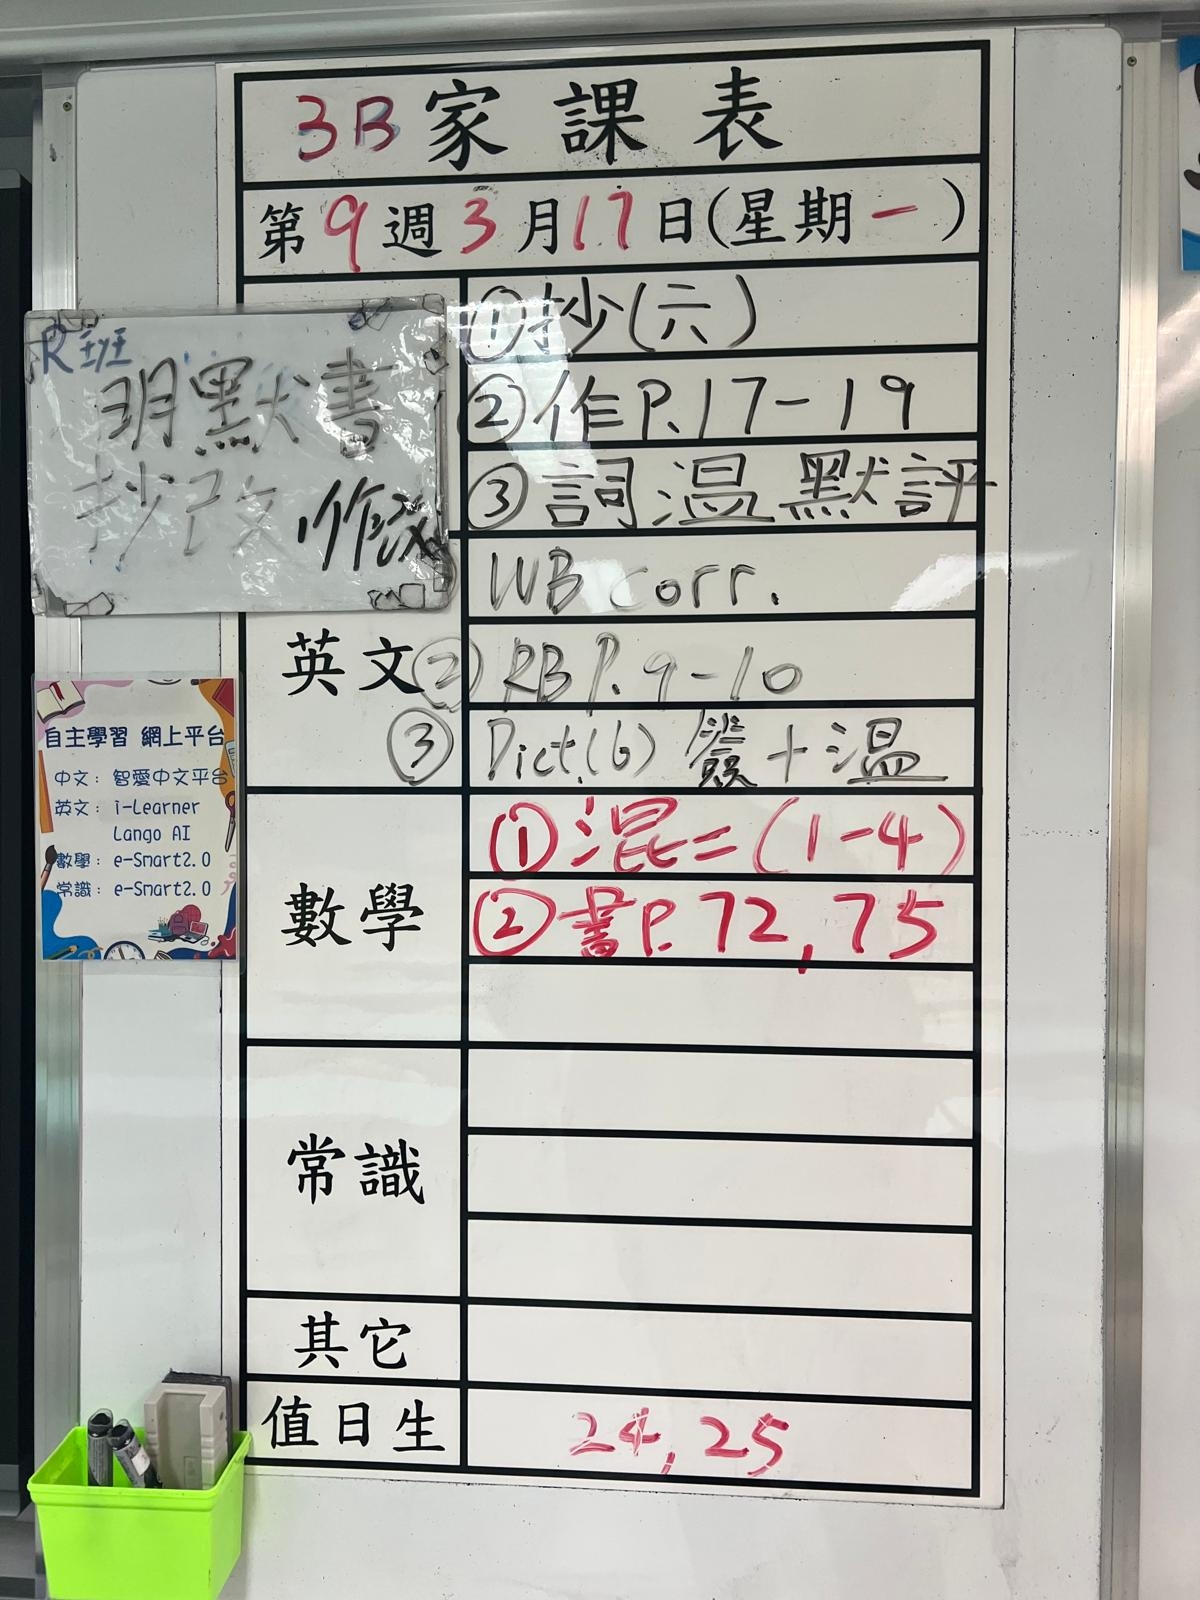 3B家課表
第9週3月17日(星期一)
①抄(六)
②作P.17-19
③詞溫默評
R班
明默書
抄改
英文
WB corr.
②RB P.9-10
③Dict.(6) 簽+溫
數學
①混二(1-4)
②書P.72,75
常識
其它
值日生
24,25
自主學習 網上平台
中文：智愛中文平台
英文：i-Learner
Lango AI
數學：e-Smart2.0
常識：e-Smart2.0